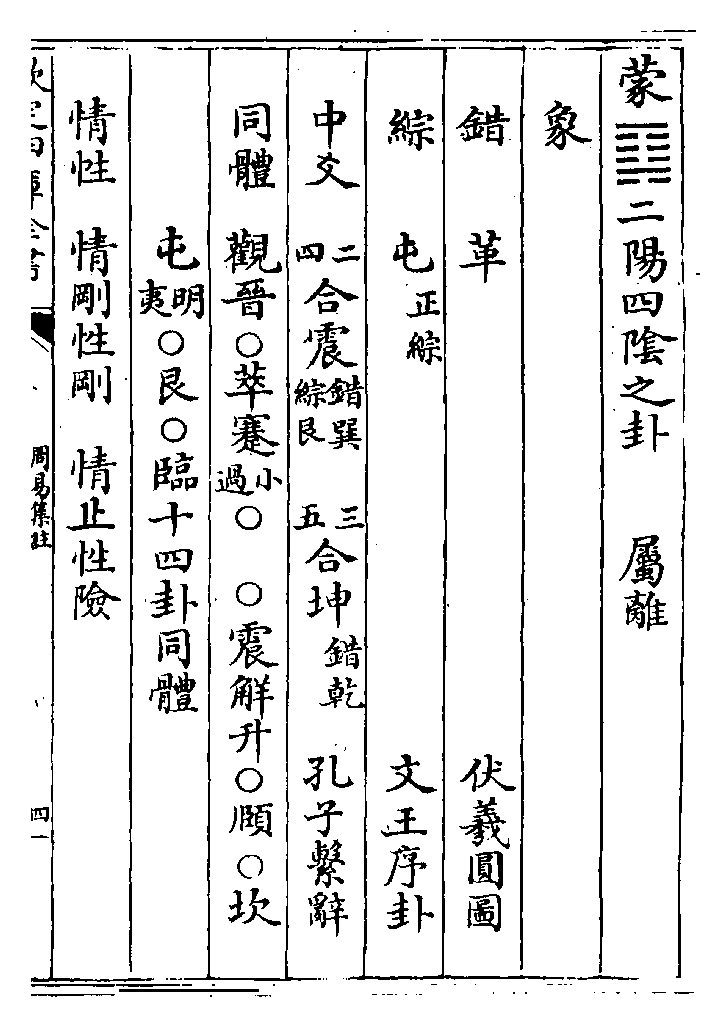 蒙䷃二陽四陰之卦　屬離
象
錯　革　伏羲圓圖
綜　屯正綜　文王序卦
中爻　二四合震錯巽綜艮　三五合坤錯乾　孔子繫辭
同體　觀晉○萃蹇小過○　○震解升○頤○坎
屯明夷○艮○臨十四卦同體
情性　情剛性剛　情止性險
欽定四庫全書
周易集註
四一